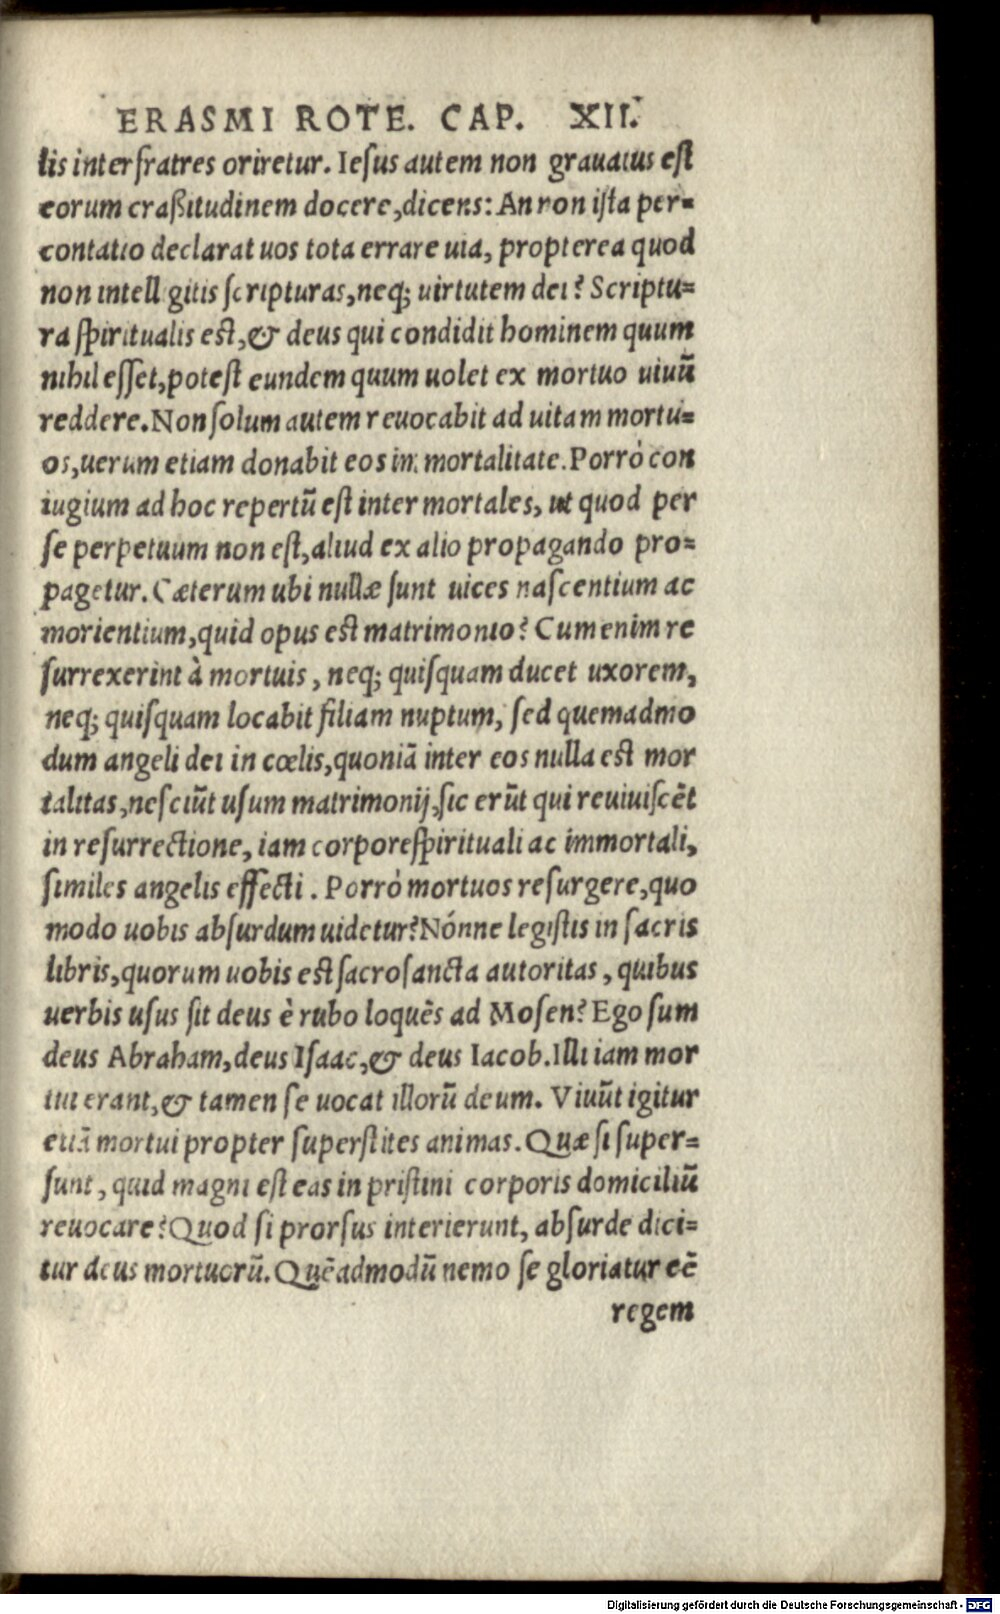 ERASMI ROTE. CAP. XII.
tis inter fratres oriretur. Iesus autem non grauatus est
eorum craßitudinem docere, dicens: An non ista per=
contatio declarat uos tota errare uia, propterea quod
non intelligitis scripturas, neq; uirtutem dei? Scriptu=
ra spiritualis est, & deus qui condidit hominem quum
nihil esset, potest eundem quum uolet ex mortuo uiuū
reddere. Non solum autem reuocabit ad uitam mortu=
os, uerum etiam donabit eos immortalitate. Porrò con
iugium ad hoc repertū est inter mortales, ut quod per
se perpetuum non est, aliud ex alio propagando pro=
pagetur. Cæterum ubi nullæ sunt uices nascentium ac
morientium, quid opus est matrimonio? Cum enim re
surrexerint à mortuis, neq; quisquam ducet uxorem,
neq; quisquam locabit filiam nuptum, sed quemadmo
dum angeli dei in cœlis, quoniā inter eos nulla est mor
talitas, nesciūt usum matrimonij, sic erūt qui reuiuiscēt
in resurrectione, iam corpore spirituali ac immortali,
similes angelis effecti. Porrò mortuos resurgere, quo
modo uobis absurdum uidetur? Nónne legistis in sacris
libris, quorum uobis est sacrosancta autoritas, quibus
uerbis usus sit deus è rubo loquēs ad Mosen? Ego sum
deus Abraham, deus Isaac, & deus Iacob. Illi iam mor
tui erant, & tamen se uocat illorū deum. Viuūt igitur
etiā mortui propter superstites animas. Quæ si super=
sunt, quid magni est eas in pristini corporis domiciliū
reuocare? Quod si prorsus interierunt, absurde dici=
tur deus mortuorū. Quēadmodū nemo se gloriatur eē
regem
Digitalisierung gefördert durch die Deutsche Forschungsgemeinschaft - DFG